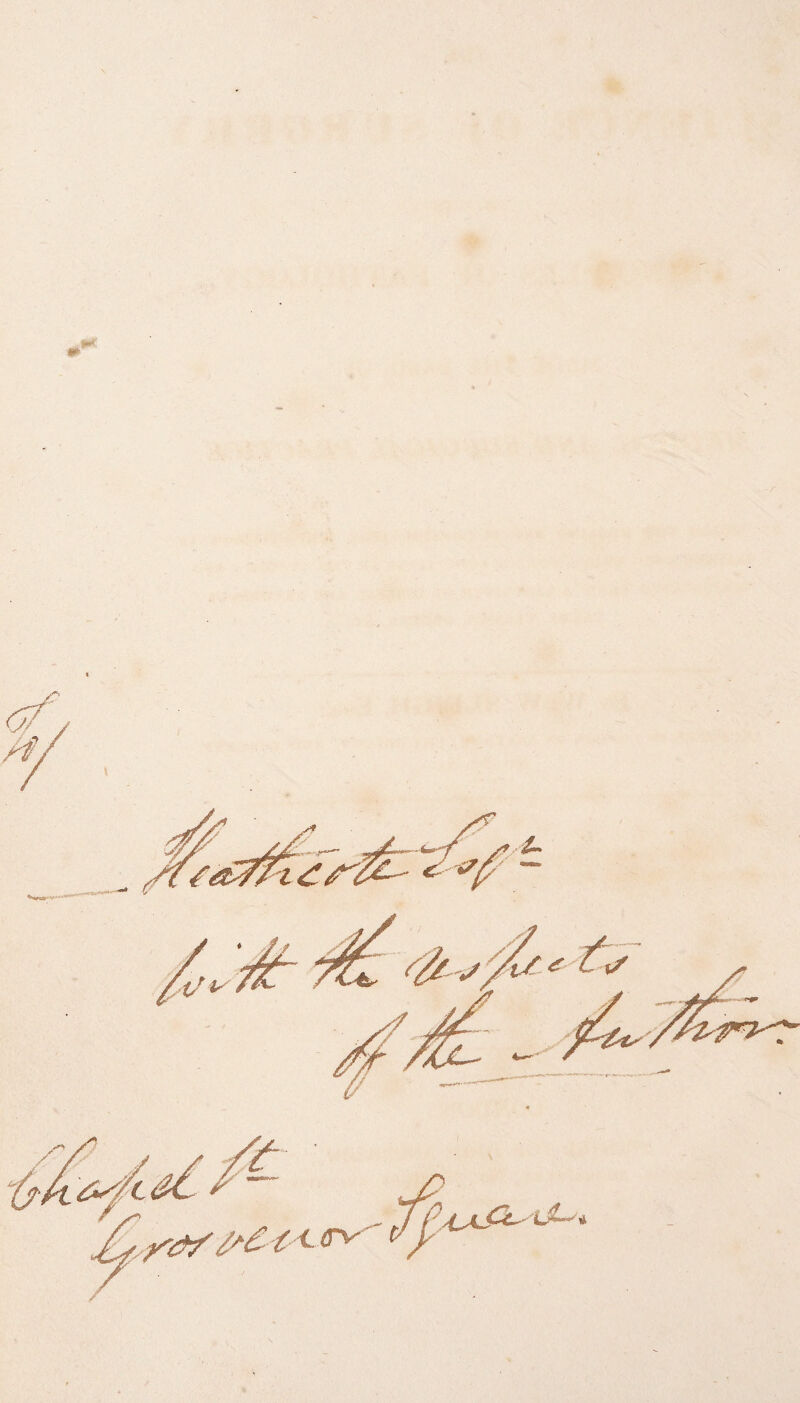 To/
—— Heathcote Esqr
with the respects
of the Author
Chapel St
Grosvenor Square.